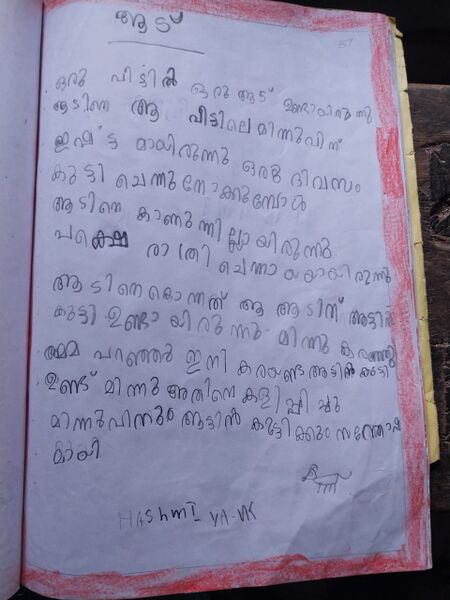 ആട്
51
ഒരു വീട്ടിൽ ഒരു ആട് ഉണ്ടായിരുന്നു
ആടിനെ ആ വീട്ടിലെ മിന്നുവിന്
ഇഷ്ട മായിരുന്നു ഒരു ദിവസം
കുട്ടി ചെന്നു നോക്കുമ്പോൾ
ആടിനെ കാണുന്നി ല്ലായിരുന്നു
പക്ഷെ രാത്രി ചെന്നാ യയായിരുന്നു
ആടിനെകൊന്നത് ആ ആടിന് ആട്ടിൻ
കുട്ടി ഉണ്ടാ യിരു ന്നു മിന്നു കരഞ്ഞു
അമ്മ പറഞ്ഞു ഇനി കരയണ്ട ആടിൻ കുട്ടി
ഉണ്ട് മിന്നു അതിനെ കളിപ്പി ച്ചു
മിന്നുവിന്നും ആട്ടിൻ കുട്ടിക്കും സന്തോഷ
മായി
HAShmI VA.VK